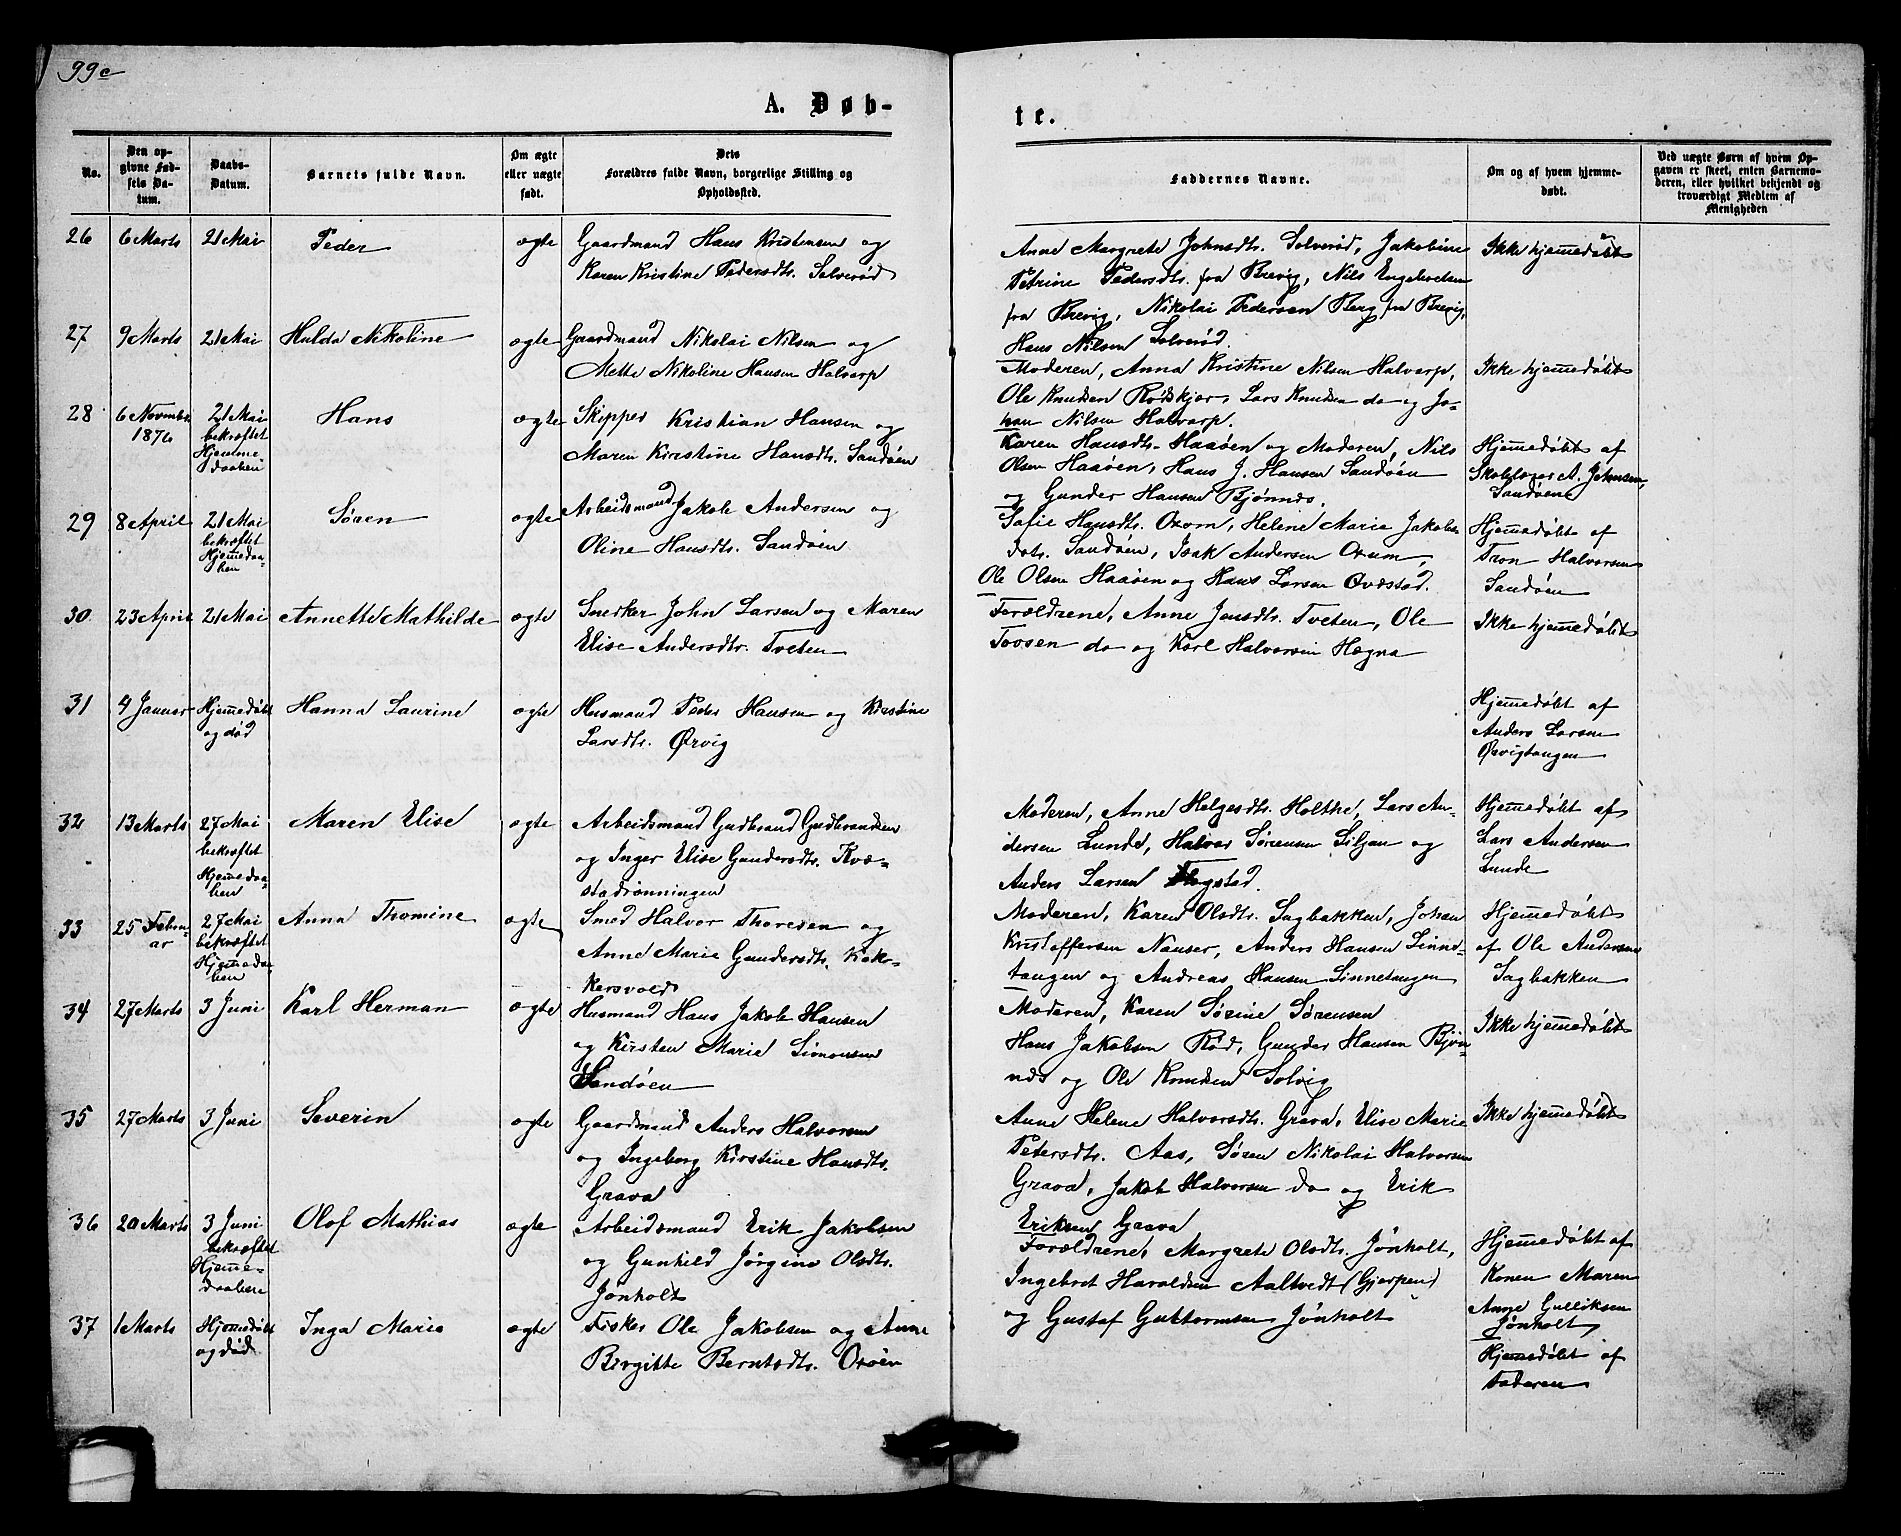 99c
A. Døb-
te.
No.
Den op-
givne Fød-
sels Da-
tum.
Daabs-
Datum.
Barnets fulde Navn.
Om ægte
eller uægte
født.
Dets
Forældres fulde Navn, borgerlige Stilling og
Opholdssted.
Faddernes Navne.
Om og af hvem hjemme-
døbt.
Ved uægte Børn af hvem Op-
gaven er skeet, enten Barnemo-
deren, eller hvilket bekjendt og
troværdigt Medlem af
Menigheden
26 6 Marts 21 Mai Peder ægte Gaardmand Hans Kristensen og
Karen Kristine Pedersdtr. Solverød
Anne Margrete Johnsdtr. Solverød, Jakobine
Petrine Pedersdtr. fra Brevig, Nils Engebretsen
fra Brevig, Nikolai Pedersen Berg fra Brevig,
Hans Nilsen Solverød.
Ikke hjemmedøbt
27 9 Marts 21 Mai Hulda Nikoline ægte Gaardmand Nikolai Nilsen og
Mette Nikoline Hansen Halvarp
Moderen, Anna Kristine Nilsen Halvarp,
Ole Knudsen Rødskjær, Lars Knudsen do og Jo-
han Nilsen Halvarp.
Ikke hjemmedøbt
28 6 Novembr
1876
21 Mai
bekræftet
Hjemme-
daaben
Hans ægte Skipper Kristian Hansen og
Maren Kirstine Hansdtr. Sandøen
Karen Hansdtr. Haaøen og Moderen, Nils
Olsen Haaøen, Hans J. Hansen Sandøen
og Gunder Hansen Bjønnes.
Hjemmedøbt af
A. Johnsen,
Sandøen
29 8 April 21 Mai
bekræftet
Hjemedaa-
ben
Søren ægte Arbeidsmand Jakob Andersen og
Oline Hansdtr. Sandøen
Sofie Hansdtr. Oxum, Helene Marie Jakobs-
dtr. Sandøen, Isak Andersen Oxum,
Ole Olsen Haaøen og Hans Larsen Øvrstad.
Hjemmedøbt af
Tron Halvorsen
Sandøen
30 23 April 21 Mai Annette Mathilde ægte Snedker John Larsen og Maren
Elise Andersdtr. Tveten
Forældrene, Anne Jensdtr. Tveten, Ole
Tovsen do og Karl Halvorsen Høgna
Ikke hjemmedøbt
31 4 Januar Hjemmedøbt
og død
Hanna Laurine ægte Husmand Peder Hansen og Kirstine
Larsdtr. Ørvig
Hjemmedøbt af
Anders Larsen
Ørvigtangen
32 13 Marts 27 Mai
bekræftet
Hjemedaa-
ben
Maren Elise ægte Arbeidsmand Gudbrand Gudbrandsen
og Inger Elise Gundersdtr. Kvæ-
stadrønningen
Moderen, Anne Helgesdtr. Holthe, Lars An-
dersen Lunde, Halvor Sørensen Siljan og
Anders Larsen Flogstad.
Hjemmedøbt af
Lars Andersen
Lunde
33 25 Febru-
ar
27 Mai
bekræftet
Hjemedaa-
ben
Anna Thomine ægte Smed Halvor Thoresen og
Anne Marie Gundersdtr. Kok-
kersvold
Moderen, Karen Olsdtr. Sagbakken, Johan
Kristoffersen Nauser, Anders Hansen Linne-
tangen og Andreas Hansen Linnetangen
Hjemmedøbt
af Ole Andersen
Sagbakken
34 27 Marts 3 Juni Karl Herman ægte Husmand Hans Jakob Hansen
og Kirsten Marie Simonsen
Sandøen
Moderen, Karen Sørine Sørensen
Hans Jakobsen Rød, Gunder Hansen Bjøn-
nes og Ole Knudsen Solvig
Ikke hjemmedøbt
35 27 Marts 3 Juni Severin ægte Gaardmand Anders Halvorsen
og Ingeborg Kirstine Hansdtr.
Grava
Anne Helene Halvorsdtr. Grava, Elise Marie
Petersdtr. Aas, Søren Nikolai Halvorsen
Grava, Jakob Halvorsen do og Erik
Eriksen Grava
Ikke hjemmedøbt
36 20 Marts 3 Juni
bekræftet
Hjemme-
daaben
Olof Mathias ægte Arbeidsmand Erik Jakobsen
og Gunhild Jørgine Olsdtr.
Jønholt
Forældrene, Margrete Olsdtr. Jønholt,
Ingebret Haraldsen Aaltvedt (Gjerpen)
og Gustaf Guttormsen Jønholt
Hjemmedøbt af
Konen Maren
Anne Gulliksen
Jønholt
37 1 Marts Hjemmedøbt
og død
Inga Marie ægte Fisker Ole Jakobsen og Anne
Birgitte Berntsdtr. Oxøen
Hjemmedøbt af
Faderen